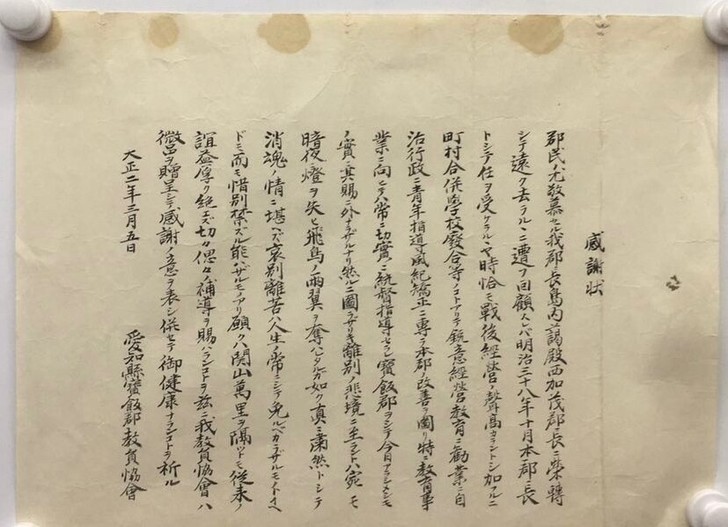 感謝状
郡民ノ尤敬慕セル我郡長島内譪殿西加茂郡長ニ榮轉
シテ遠ク去ラルヽニ遭フ回顧スレバ明治三十八年十月本郡ニ長
トシテ任ヲ受ケラルヽヤ時恰モ戦後經営ノ聲高カラントシ加フルニ
町村合併學校廢合等ノコトアリテ鋭意經営教育ニ勧業ニ自
治行政ニ青年指導風紀矯正ニ専ラ本郡ノ改善ヲ圖リ特ニ教育事
業ニ向ヒテハ常ニ切實ニ統督指導セラレ寳飯郡ヲシテ今日アラシメシモ
ノ實ニ其賜ニ外ナラザルナリ然ルニ圖ラザリキ離別ノ悲境ニ至ラントハ宛モ
暗夜燈ヲ失ヒ飛鳥ノ両翼ヲ奪ハレタルガ如ク真ニ粛然トシテ
消魂ノ情ニ堪ヘズ哀別離苦ハ人生ノ常ニシテ免ルベカラザルモノト
ドモ而モ惜別禁ズル能ハザルモノアリ願クハ関山萬里ヲ隔ツトモ従来ノ
誼益厚ク絶エズ切々偲々ノ補導ヲ賜ハランコトヲ茲ニ我教員協會ハ
微品ヲ贈呈シテ感謝ノ意ヲ表シ併セテ御健康ナランコトヲ祈ル
大正二年三月五日
愛知縣寳飯郡教員協會